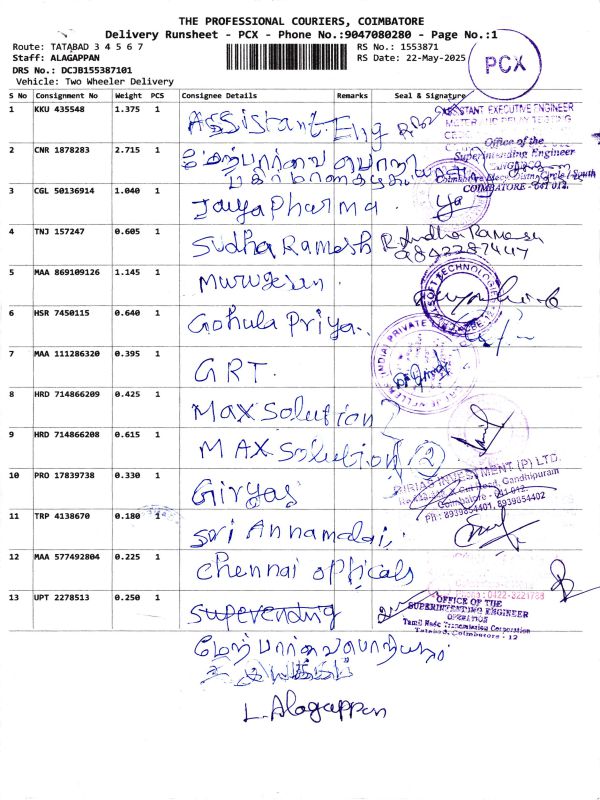 THE PROFESSIONAL COURIERS, COIMBATORE
Delivery Runsheet - PCX - Phone No.:9047080280 - Page No.:1
Route: TATABAD 3 4 5 6 7
RS No.: 1553871
Staff: ALAGAPPAN
RS Date: 22-May-2025
DRS No.: DCJB155387101
Vehicle: Two Wheeler Delivery
PCX
S No Consignment No Weight PCS Consignee Details Remarks Seal & Signature
1 KKU 435548 1.375 1 Assistant. Eng
ASSISTANT EXECUTIVE ENGINEER
2 CNR 1878283 2.715 1 மேற்பார்வை பொறி
Office of the
Superintending Engineer
COIMBATORE - 641 012.
3 CGL 50136914 1.040 1 Jaya Pharma.
4 TNJ 157247 0.605 1 Sudha Ramesh R. Sudha Ramesh
9842287447
5 MAA 869109126 1.145 1 Murugesan
6 HSR 7450115 0.640 1 Gohula Priya..
7 MAA 111286320 0.395 1 GRT.
8 HRD 714866209 0.425 1 Max Solution
9 HRD 714866208 0.615 1 MAX Solution 2
10 PRO 17839738 0.330 1 Giryas
GIRIAS INVESTMENT (P) LTD.
Cut Road, Gandhipuram
Coimbatore - 641 012.
Ph : 8939854401, 8939854402
11 TRP 4138670 0.180 1 Sri Annamalai,
12 MAA 577492804 0.225 1 Chennai opticals
Phone : 0422-3221788
13 UPT 2278513 0.250 1 Supevending
OFFICE OF THE
SUPERINTENDING ENGINEER
OPERATION
Tamil Nadu Transmission Corporation
Tatabad, Coimbatore - 12
மேற்பார்வை பொறியாளர்
L. Alagappan